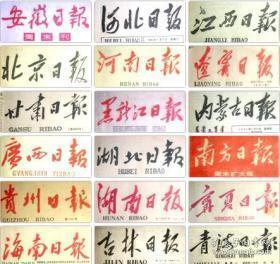 安徽日报
周末刊
河北日报
HEBEI RIBAO
江西日报
JIANGXI RIBAO
北京日报
河南日报
HENAN RIBAO
辽宁日报
LIAONING RIBAO
甘肃日报
GANSU RIBAO
黑龙江日报
内蒙古日报
廣西日报
GUANGXI RIBAO
湖北日報
HUBEI RIBAO
南方日报
周末扩大版
贵州日报
GUIZHOU RIBAO
湖南日報
HUNAN RIBAO
宁夏日报
NINGXIA RIBAO
海南日报
吉林日报
JILIN RIBAO
青海日报